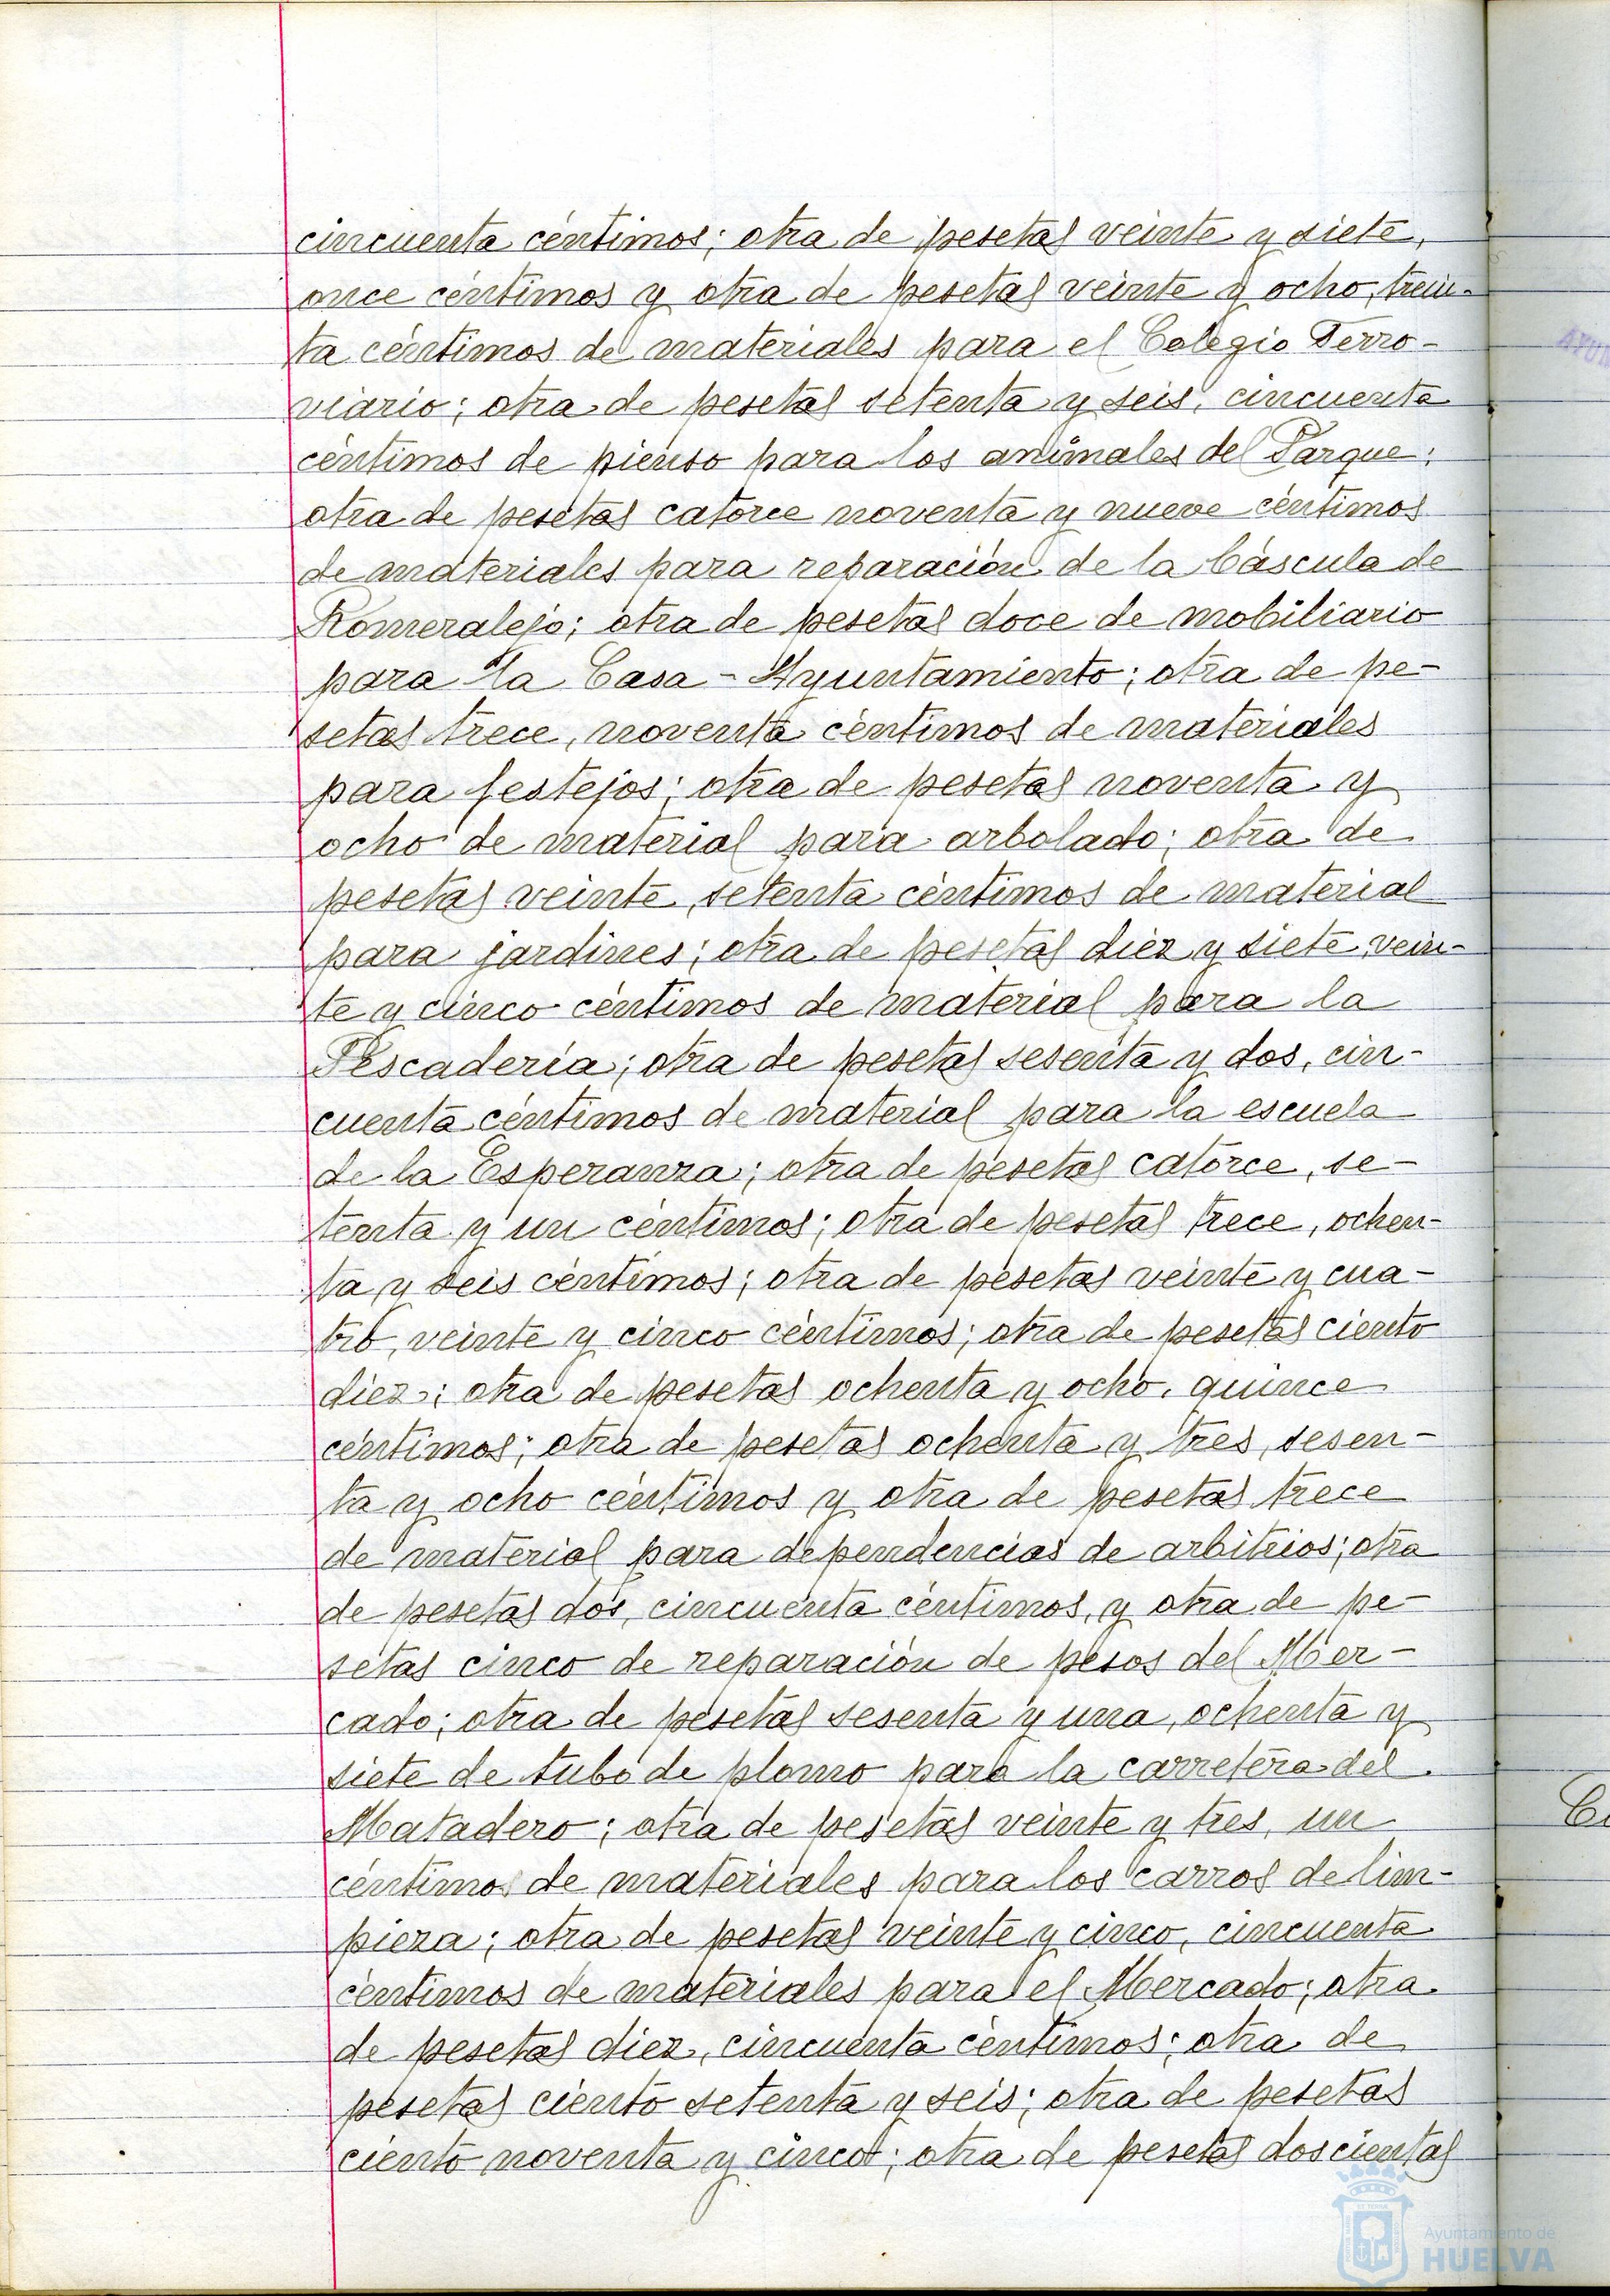 cincuenta céntimos; otra de pesetas veinte y siete,
once céntimos y otra de pesetas veinte y ocho, trein-
ta céntimos de materiales para el Colegio Ferro-
viario; otra de pesetas setenta y seis, cincuenta
céntimos de pienso para los animales del Parque;
otra de pesetas catorce noventa y nueve céntimos
de materiales para reparación de la báscula de
Romeralejo; otra de pesetas doce de mobiliario
para la Casa-Ayuntamiento; otra de pe-
setas trece, noventa céntimos de materiales
para festejos; otra de pesetas noventa y
ocho de material para arbolado; otra de
pesetas veinte, setenta céntimos de material
para jardines; otra de pesetas diez y siete, vein-
te y cinco céntimos de material para la
Pescadería; otra de pesetas sesenta y dos, cin-
cuenta céntimos de material para la escuela
de la Esperanza; otra de pesetas catorce, se-
tenta y un céntimos; otra de pesetas trece, ochen-
ta y seis céntimos; otra de pesetas veinte y cua-
tro, veinte y cinco céntimos; otra de pesetas ciento
diez; otra de pesetas ochenta y ocho, quince
céntimos; otra de pesetas ochenta y tres, sesen-
ta y ocho céntimos y otra de pesetas trece
de material para dependencias de arbitrios; otra
de pesetas dos, cincuenta céntimos, y otra de pe-
setas cinco de reparación de pesos del Mer-
cado; otra de pesetas sesenta y una, ochenta y
siete de tubo de plomo para la carretera del
Matadero; otra de pesetas veinte y tres, un
céntimos de materiales para los carros de lim-
pieza; otra de pesetas veinte y cinco, cincuenta
céntimos de materiales para el Mercado; otra
de pesetas diez, cincuenta céntimos; otra de
pesetas ciento setenta y seis; otra de pesetas
ciento noventa y cinco; otra de pesetas doscientas
Ayuntamiento de
HUELVA